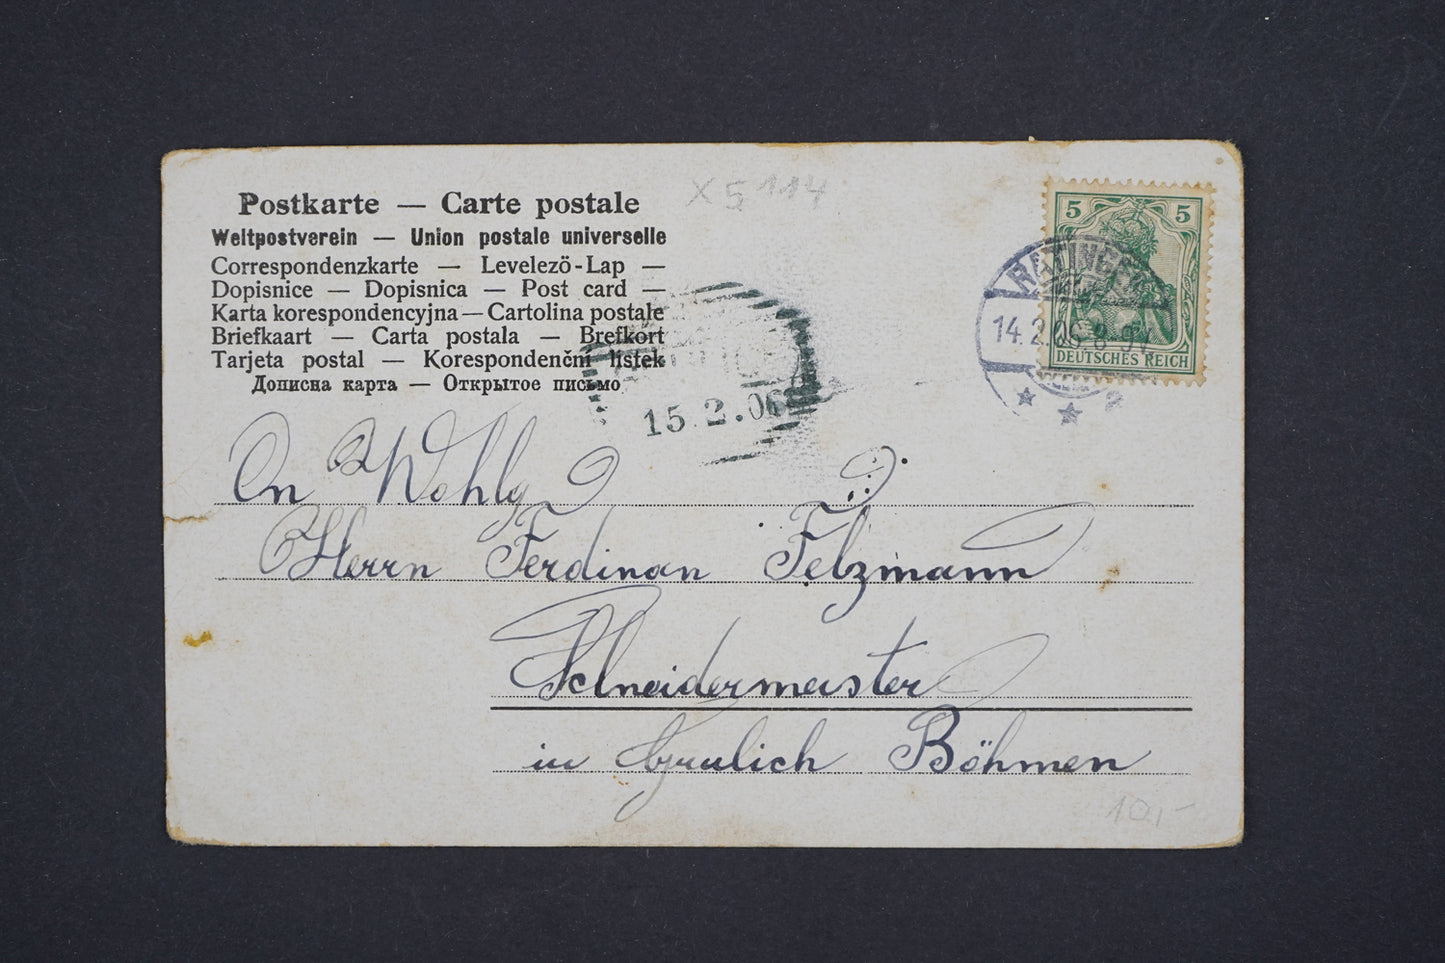 Postkarte — Carte postale
Weltpostverein — Union postale universelle
Correspondenzkarte — Levelező-Lap —
Dopisnice — Dopisnica — Post card —
Karta korespondencyjna — Cartolina postale
Briefkaart — Carta postala — Brefkort
Tarjeta postal — Korespondenční lístek
Дописна карта — Открытое письмо
X 5114
5 5
DEUTSCHES REICH
RATINGEN
14.2.06 8-9V
2
15.2.06
An Wohlg
Herrn Ferdinan Felzmann
Schneidermeister
in Böhmen
10,-